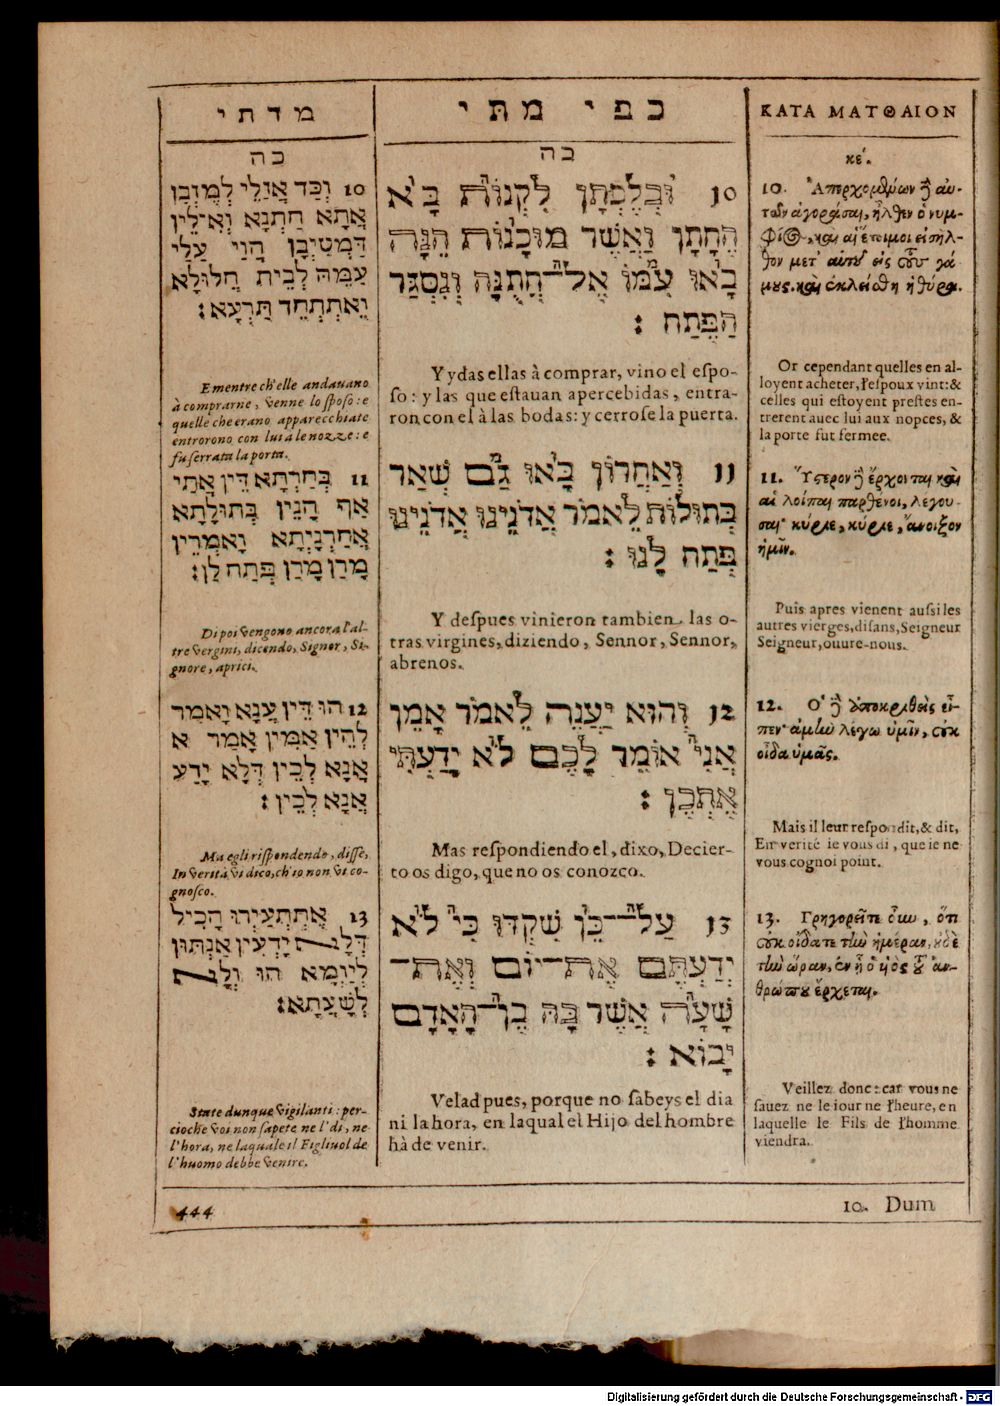 מדתי
כה
10 וְכַד אֲזַלֵי לְמֶזְבַן
אֲתָא חַתְנָא וְאִילֵין
דַּמְטַיְבָן הֲוַי עַלִי
עַמֵּהּ לְבֵית חֲלוּלָא
וְאֶתְתְחֵד תַּרְעָא:
E mentre ch'elle andauano
à comprarne, venne lo sposo: e
quelle che erano apparecchiate
entrorono con lui a le nozze: e
fu serrata la porta.
11 בְּחַרְתָא דֵין אֲתַי
אַף הָנֵין בְּתוּלָתָא
אֲחַרְנְיָתָא וְאָמְרֵין
מָרַן מָרַן פְּתַח לַן:
Dipoi vengono ancora l'al-
tre vergini, dicendo, Signor, Si-
gnore, aprici.
12 הוּ דֵין עֲנָא וֶאְמַר
לְהֵין אַמִין אָמַר א
אֲנָא לְכֵין דְּלָא יָדַע
אֲנָא לְכֵין:
Ma egli rispondendo, disse,
In verità vi dico, ch'io non vi co-
gnosco.
13 אֶתְּתְעִירוּ הָכִיל
דְּלָא יָדְעִין אַנְתּוּן
לְיַוּמָא הוּ וְלָא
לְשָׁעֲתָא:
State dunque vigilanti: per-
cioche voi non sapete ne l'dì, ne
l'hora, ne la quale il Figliuol de
l'huomo debbe venire.
כפי מתי
כה
10 וּבְלֶכְתָּן לִקְנוֹת בָּא
הֶחָתָן וַאֲשֶׁר מוּכָנוֹת הֵנָּה
בָּאוּ עִמּוֹ אֶל־חֲתֻנָּה וְנִסְגַּר
הַפֶּתַח:
Y ydas ellas à comprar, vino el espo-
so: y las que estauan apercebidas, entra-
ron con el à las bodas: y cerrose la puerta.
11 וְאַחֲרוֹן בָּאוּ גַּם שְׁאַר
בְּתוּלוֹת לֵאמֹר אֲדֹנֵינוּ אֲדֹנֵינוּ
פְּתַח לָנוּ:
Y despues vinieron tambien las o-
tras virgines, diziendo, Sennor, Sennor,
abrenos.
12 וְהוּא יַעֲנֶה לֵאמֹר אָמֵן
אֲנִי אוֹמֵר לָכֶם לֹא יָדַעְתִּי
אֶתְכֶן:
Mas respondiendo el, dixo, Decier-
to os digo, que no os conozco.
13 עַל־כֵּן שִׁקְדוּ כִּי לֹא
יְדַעְתֶּם אֶת־יוֹם וְאֶת־
שָׁעָה אֲשֶׁר בָּהּ בֶן־הָאָדָם
יָבוֹא:
Velad pues, porque no sabeys el dia
ni la hora, en laqual el Hijo del hombre
hà de venir.
ΚΑΤΑ ΜΑΤΘΑΙΟΝ
κέ.
10. Ἀπερχομένων δὲ αὐ-
τῶν ἀγοράσαι, ἦλθεν ὁ νυμ-
φίος, καὶ αἱ ἕτοιμοι εἰσῆλ-
θον μετ' αὐτοῦ εἰς τοὺς γά-
μους. καὶ ἐκλείσθη ἡ θύρα.
Or cependant quelles en al-
loyent acheter, l'espoux vint: &
celles qui estoyent prestes en-
trerent auec lui aux nopces, &
la porte fut fermee.
11. Ὕστερον δὲ ἔρχονται καὶ
αἱ λοίπαι παρθένοι, λέγου-
σαι· κύριε, κύριε, ἄνοιξον
ἡμῖν.
Puis apres vienent aussi les
autres vierges, disans, Seigneur
Seigneur, ouure-nous.
12. Ὁ δὲ ἀποκριθεὶς εἶ-
πεν· ἀμὴν λέγω ὑμῖν, οὐκ
οἶδα ὑμᾶς.
Mais il leur respondit, & dit,
En verité ie vous di, que ie ne
vous cognoi point.
13. Γρηγορεῖτε οὖν, ὅτι
οὐκ οἴδατε τὴν ἡμέραν, οὐδὲ
τὴν ὥραν, ἐν ᾗ ὁ υἱὸς τοῦ ἀν-
θρώπου ἔρχεται.
Veillez donc: car vous ne
sauez ne le iour ne l'heure, en
laquelle le Fils de l'homme
viendra.
444
10. Dum
Digitalisierung gefördert durch die Deutsche Forschungsgemeinschaft - DFG